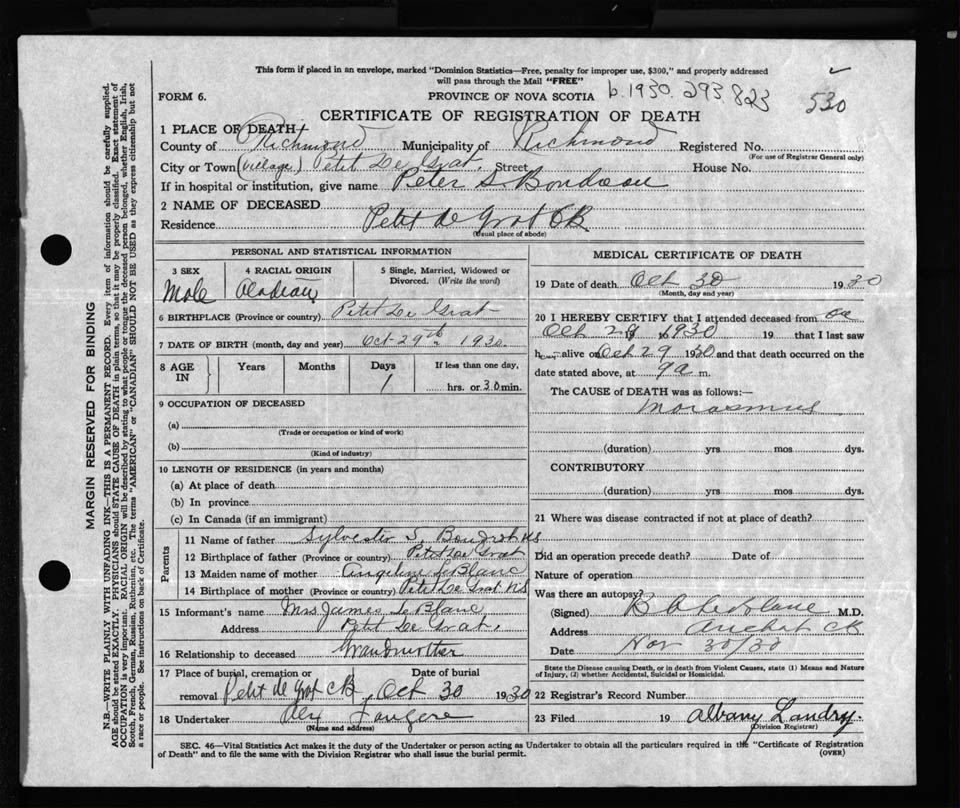 This form if placed in an envelope, marked "Dominion Statistics—Free, penalty for improper use, $300," and properly addressed
will pass through the Mail "FREE"
FORM 6. PROVINCE OF NOVA SCOTIA b.1930. 293 823 530
CERTIFICATE OF REGISTRATION OF DEATH
1 PLACE OF DEATH
County of Richmond Municipality of Richmond Registered No.
(For use of Registrar General only)
City or Town (village) Petit De Grat. Street House No.
If in hospital or institution, give name Peter S. Boudreau
2 NAME OF DECEASED
Residence Petit de Grat CB
(Usual place of abode)
PERSONAL AND STATISTICAL INFORMATION
3 SEX 4 RACIAL ORIGIN 5 Single, Married, Widowed or
Divorced. (Write the word)
Male Acadian
6 BIRTHPLACE (Province or country) Petit De Grat
7 DATE OF BIRTH (month, day and year) Oct 29th 1930.
8 AGE IN Years Months Days If less than one day,
1 hrs. or 30 min.
9 OCCUPATION OF DECEASED
(a)
(Trade or occupation or kind of work)
(b)
(Kind of industry)
10 LENGTH OF RESIDENCE (in years and months)
(a) At place of death
(b) In province
(c) In Canada (if an immigrant)
Parents
11 Name of father Sylvester S. Boudrot NS
12 Birthplace of father (Province or country) Petit De Grat
13 Maiden name of mother Angeline LeBlanc
14 Birthplace of mother (Province or country) Petit De Grat NS
15 Informant's name Mrs James LeBlanc
Address Petit De Grat.
16 Relationship to deceased Grandmother
17 Place of burial, cremation or Date of burial
removal Petit de Grat CB, Oct 30 1930
18 Undertaker Alex Fougere
(Name and address)
MEDICAL CERTIFICATE OF DEATH
19 Date of death Oct 30 1930
(Month, day and year)
20 I HEREBY CERTIFY that I attended deceased from on
Oct 29 1930 19 that I last saw
h alive on Oct 29 1930 and that death occurred on the
date stated above, at 9 a m.
The CAUSE of DEATH was as follows:
Marasmus
(duration) yrs mos dys.
CONTRIBUTORY
(duration) yrs mos dys.
21 Where was disease contracted if not at place of death?
Did an operation precede death? Date of
Nature of operation
Was there an autopsy?
(Signed) B A LeBlanc M.D.
Address Arichat CB
Date Nov 30/30
State the Disease causing Death, or in death from Violent Causes, state (1) Means and Nature
of Injury, (2) whether Accidental, Suicidal or Homicidal.
22 Registrar's Record Number
23 Filed 19 Albany Landry.
(Division Registrar)
SEC. 46—Vital Statistics Act makes it the duty of the Undertaker or person acting as Undertaker to obtain all the particulars required in the "Certificate of Registration
of Death" and to file the same with the Division Registrar who shall issue the burial permit. (OVER)
MARGIN RESERVED FOR BINDING
N.B.—WRITE PLAINLY WITH UNFADING INK—THIS IS A PERMANENT RECORD. Every item of information should be carefully supplied.
AGE should be stated EXACTLY. PHYSICIANS should STATE CAUSE OF DEATH in plain terms, so that it may be properly classified. Exact statement of
OCCUPATION is very important. RACIAL ORIGIN will be described by stating to what people or tongue the deceased person belonged, whether English, Irish,
Scotch, French, German, Russian, Ruthenian, etc. The terms "AMERICAN" or "CANADIAN" SHOULD NOT BE USED as they express citizenship but not
a race or people. See instructions on back of Certificate.